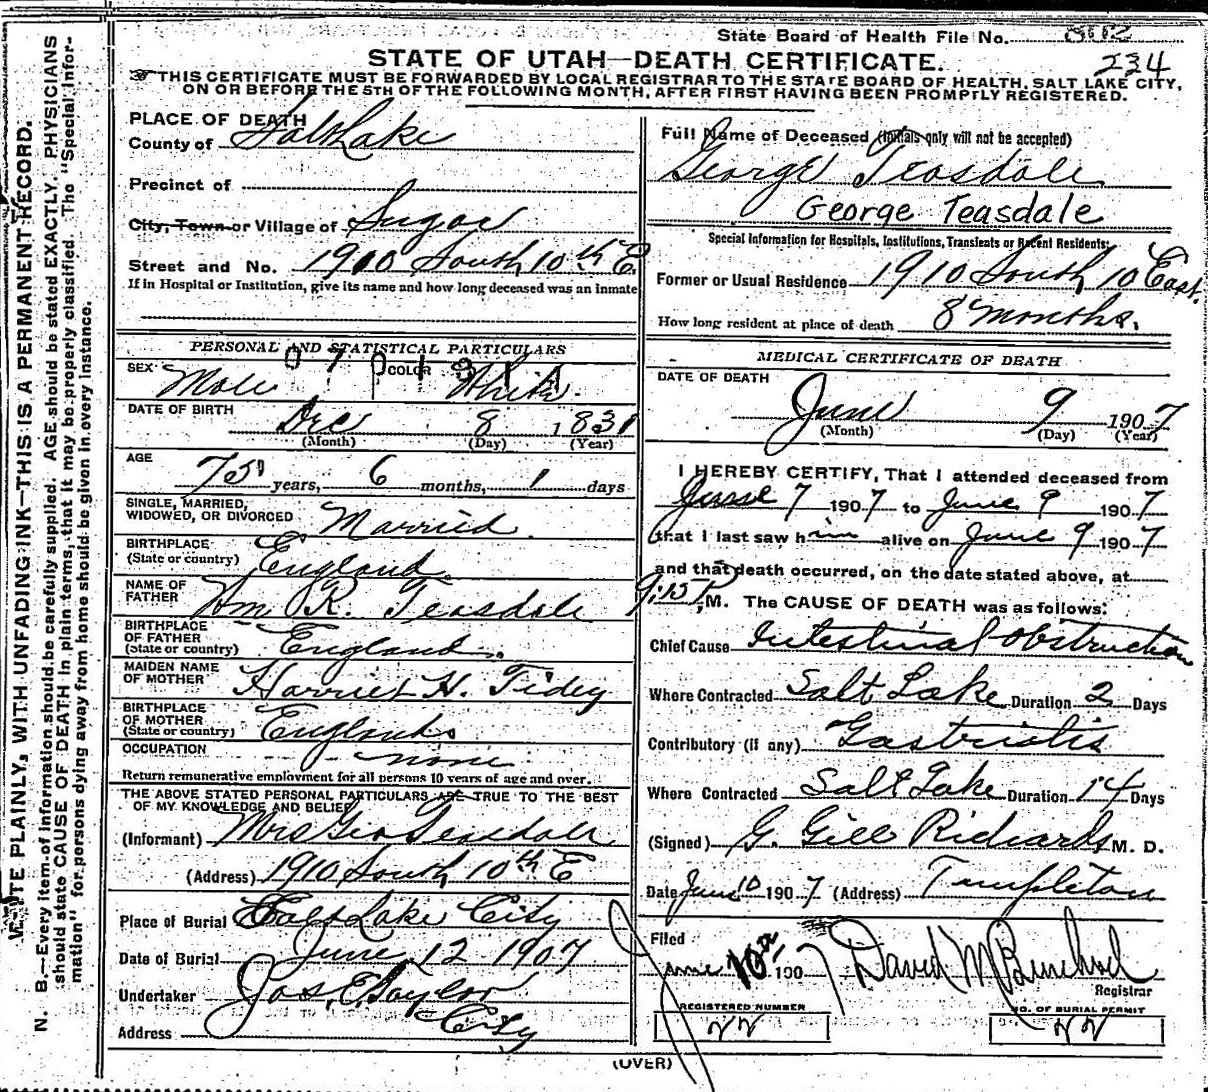 State Board of Health File No. 802
STATE OF UTAH—DEATH CERTIFICATE. 234
THIS CERTIFICATE MUST BE FORWARDED BY LOCAL REGISTRAR TO THE STATE BOARD OF HEALTH, SALT LAKE CITY,
ON OR BEFORE THE 5TH OF THE FOLLOWING MONTH, AFTER FIRST HAVING BEEN PROMPTLY REGISTERED.
WRITE PLAINLY, WITH UNFADING INK—THIS IS A PERMANENT RECORD.
N. B.—Every item of information should be carefully supplied. AGE should be stated EXACTLY. PHYSICIANS
should state CAUSE OF DEATH in plain terms, that it may be properly classified. The "Special Infor-
mation" for persons dying away from home should be given in every instance.
PLACE OF DEATH
County of Salt Lake
Precinct of
City, Town or Village of Sugar
Street and No. 1910 South 10th E
If in Hospital or Institution, give its name and how long deceased was an inmate
PERSONAL AND STATISTICAL PARTICULARS
SEX Male COLOR White
DATE OF BIRTH Dec 8 1831
(Month) (Day) (Year)
AGE 75 years, 6 months, 1 days
SINGLE, MARRIED,
WIDOWED, OR DIVORCED Married
BIRTHPLACE
(State or country) England
NAME OF
FATHER Wm R. Teasdale
BIRTHPLACE
OF FATHER
(State or country) England
MAIDEN NAME
OF MOTHER Harriet H. Tidey
BIRTHPLACE
OF MOTHER
(State or country) England
OCCUPATION none
Return remunerative employment for all persons 10 years of age and over.
THE ABOVE STATED PERSONAL PARTICULARS ARE TRUE TO THE BEST
OF MY KNOWLEDGE AND BELIEF
(Informant) Mrs Geo Teasdale
(Address) 1910 South 10th E
Place of Burial Salt Lake City
Date of Burial June 12 1907
Undertaker Jos. E Taylor
Address City
Full Name of Deceased (Initials only will not be accepted)
George Teasdale
George Teasdale
Special Information for Hospitals, Institutions, Transients or Recent Residents:
Former or Usual Residence 1910 South 10 East.
How long resident at place of death 8 months.
MEDICAL CERTIFICATE OF DEATH
DATE OF DEATH
June 9 1907
(Month) (Day) (Year)
I HEREBY CERTIFY, That I attended deceased from
June 7 1907 to June 9 1907
that I last saw him alive on June 9 1907
and that death occurred, on the date stated above, at
9:15 P. M. The CAUSE OF DEATH was as follows:
Chief Cause Intestinal Obstruction
Where Contracted Salt Lake Duration 2 Days
Contributory (if any) Gastritis
Where Contracted Salt Lake Duration 14 Days
(Signed) G. Gill Richards M. D.
Date June 10 1907 (Address) Templeton
Filed
June 1907 David M
Registrar
REGISTERED NUMBER NO. OF BURIAL PERMIT
(OVER)